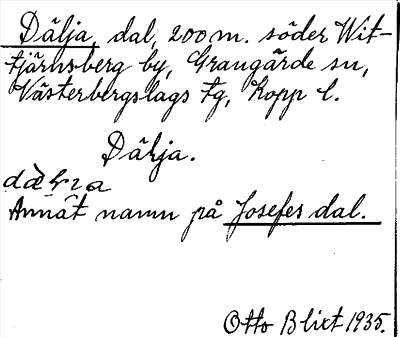 Dälja, dal, 200 m. söder Wit-
tjärnsberg by, Grangärde sn,
Västerbergslags tg, Kopp l.
Dälja.
Annat namn på Josefes dal.
Otto Blixt 1935.